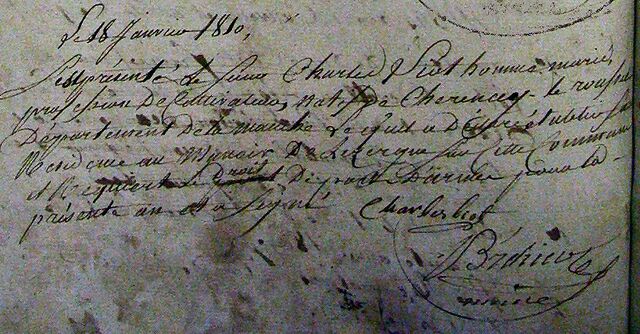 Le 18 Janvier 1810,
S'est présenté le sieur Charles Viot homme marié,
profession De Cultivateur, natif De Cherencey le roussel
Département de la manche Lequel a Declaré établir Sa
Residence au Manoir De Sur Cette Commune
et Requiert le Droit De port D'armes pour la
présente an et a Signé
Charles viot
maire